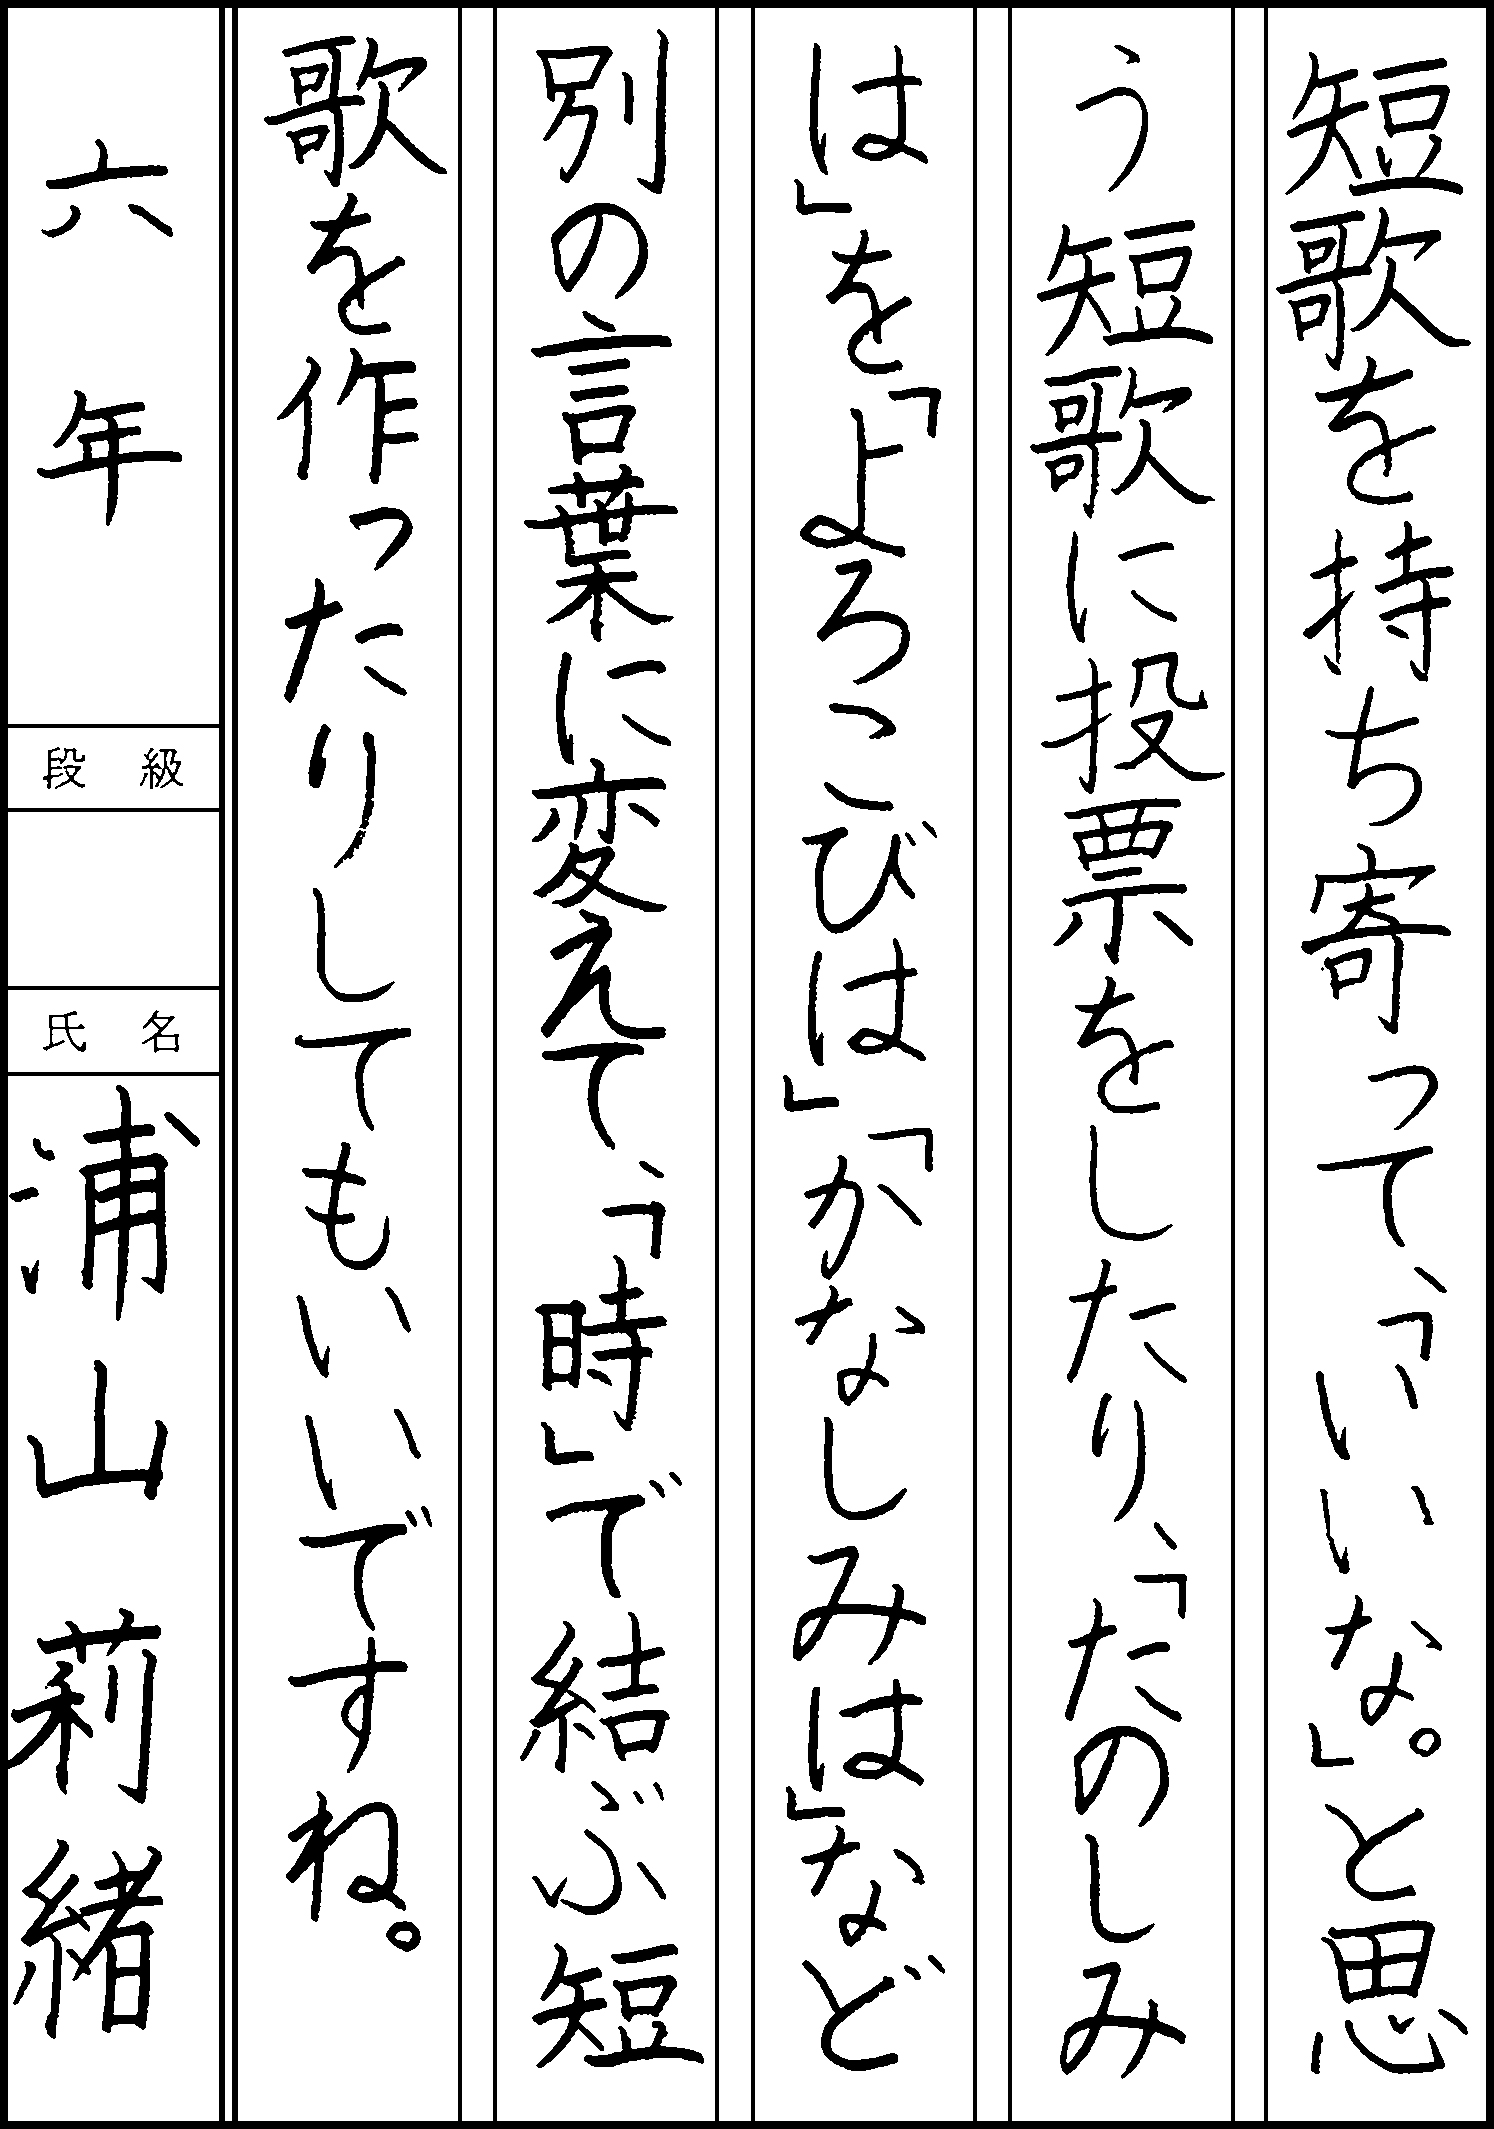 短歌を持ち寄って、「いいな。」と思
う短歌に投票をしたり、「たのしみ
は」を「よろこびは」「かなしみは」など
別の言葉に変えて、「時」で結ぶ短
歌を作ったりしてもいいですね。
六年
段級
氏名
浦山莉緒